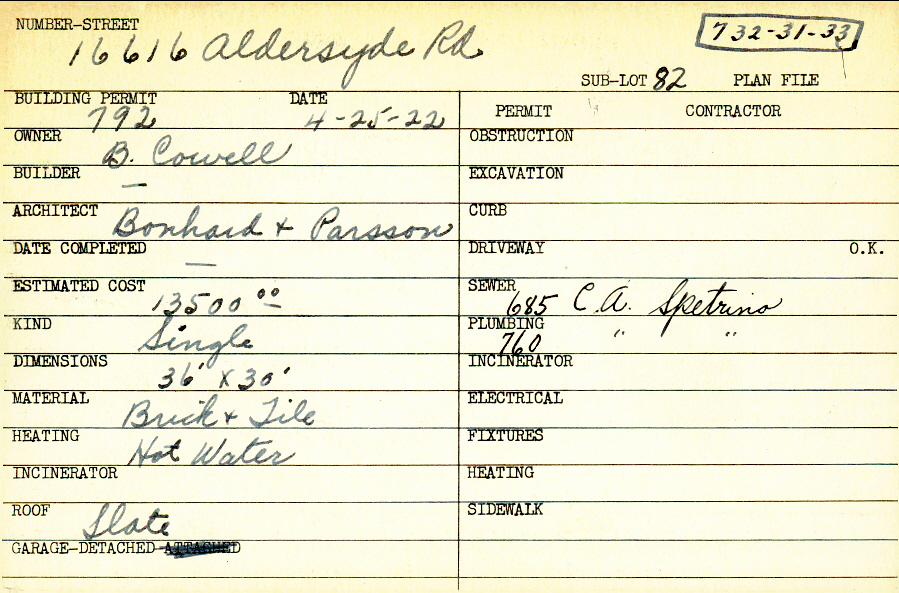 NUMBER-STREET
16616 Aldersyde Rd
732-31-33
SUB-LOT 82 PLAN FILE
BUILDING PERMIT 792 DATE 4-25-22
PERMIT CONTRACTOR
OWNER B. Cowell
OBSTRUCTION
BUILDER —
EXCAVATION
ARCHITECT Bonhard + Parsson
CURB
DATE COMPLETED —
DRIVEWAY O.K.
ESTIMATED COST 13500 00
SEWER 685 C.A. Spetrino
KIND Single
PLUMBING 760 " "
DIMENSIONS 36' X 30'
INCINERATOR
MATERIAL Brick + Tile
ELECTRICAL
HEATING Hot Water
FIXTURES
INCINERATOR
HEATING
ROOF Slate
SIDEWALK
GARAGE-DETACHED ATTACHED